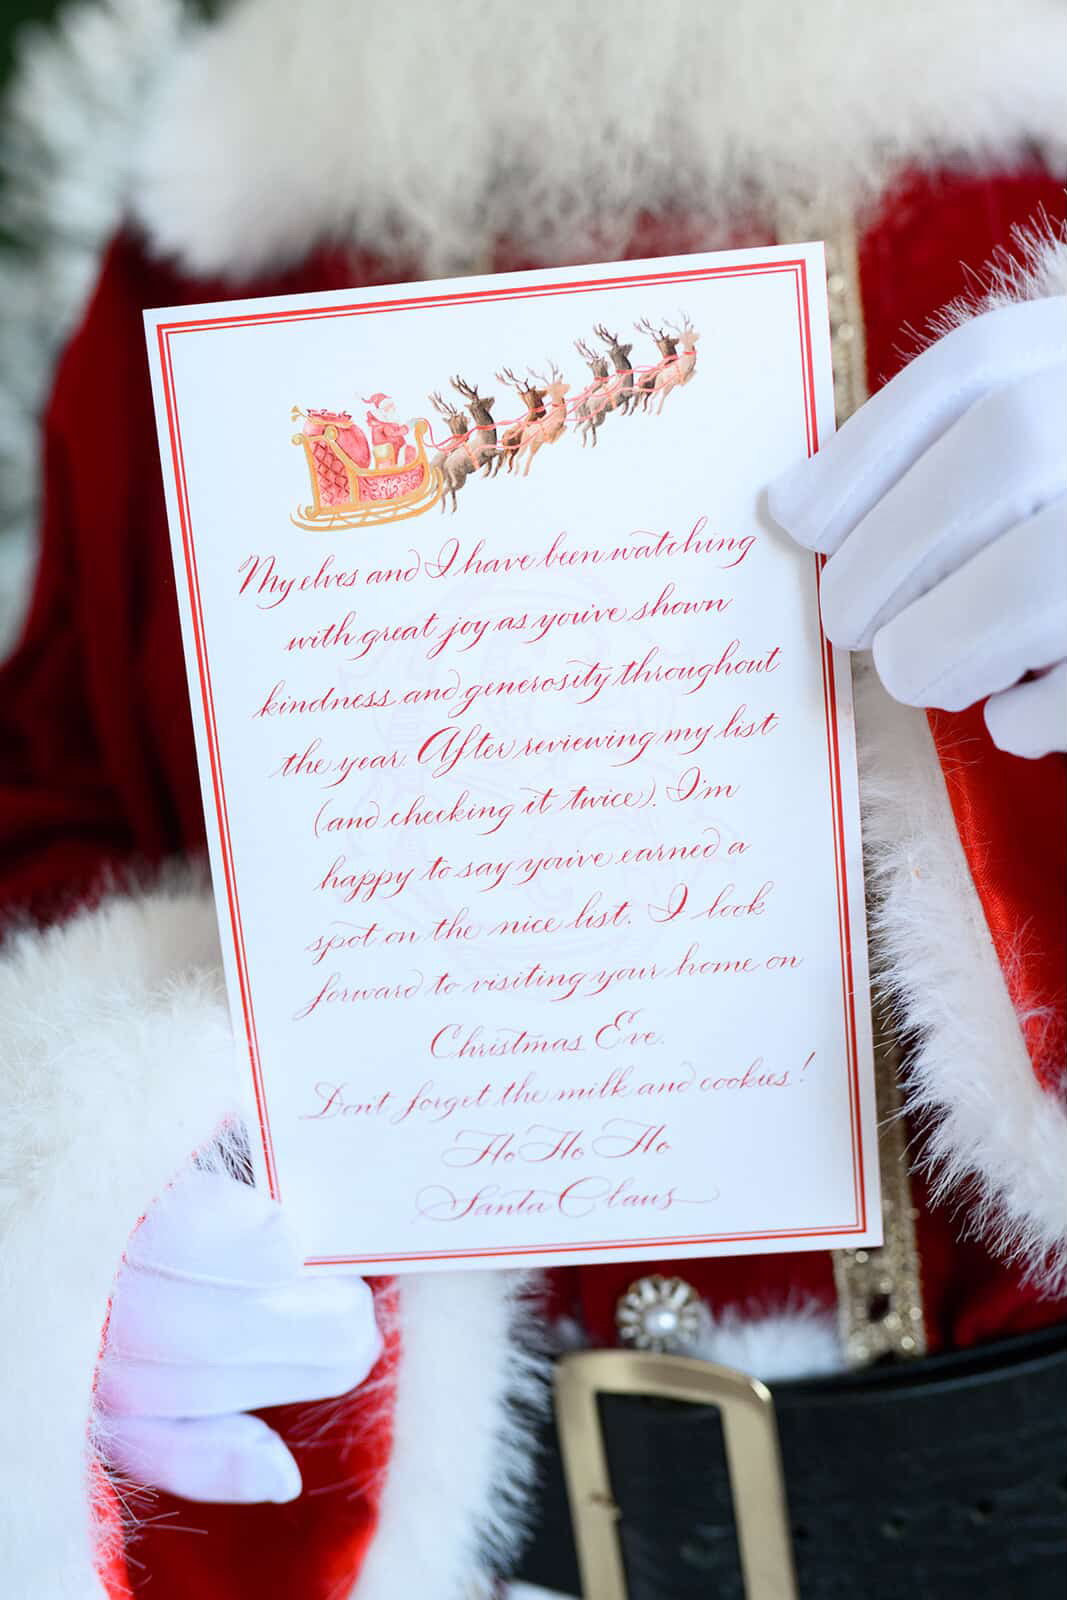 My elves and I have been watching
with great joy as you've shown
kindness and generosity throughout
the year. After reviewing my list
(and checking it twice). I'm
happy to say you've earned a
spot on the nice list. I look
forward to visiting your home on
Christmas Eve.
Don't forget the milk and cookies!
Ho Ho Ho
Santa Claus